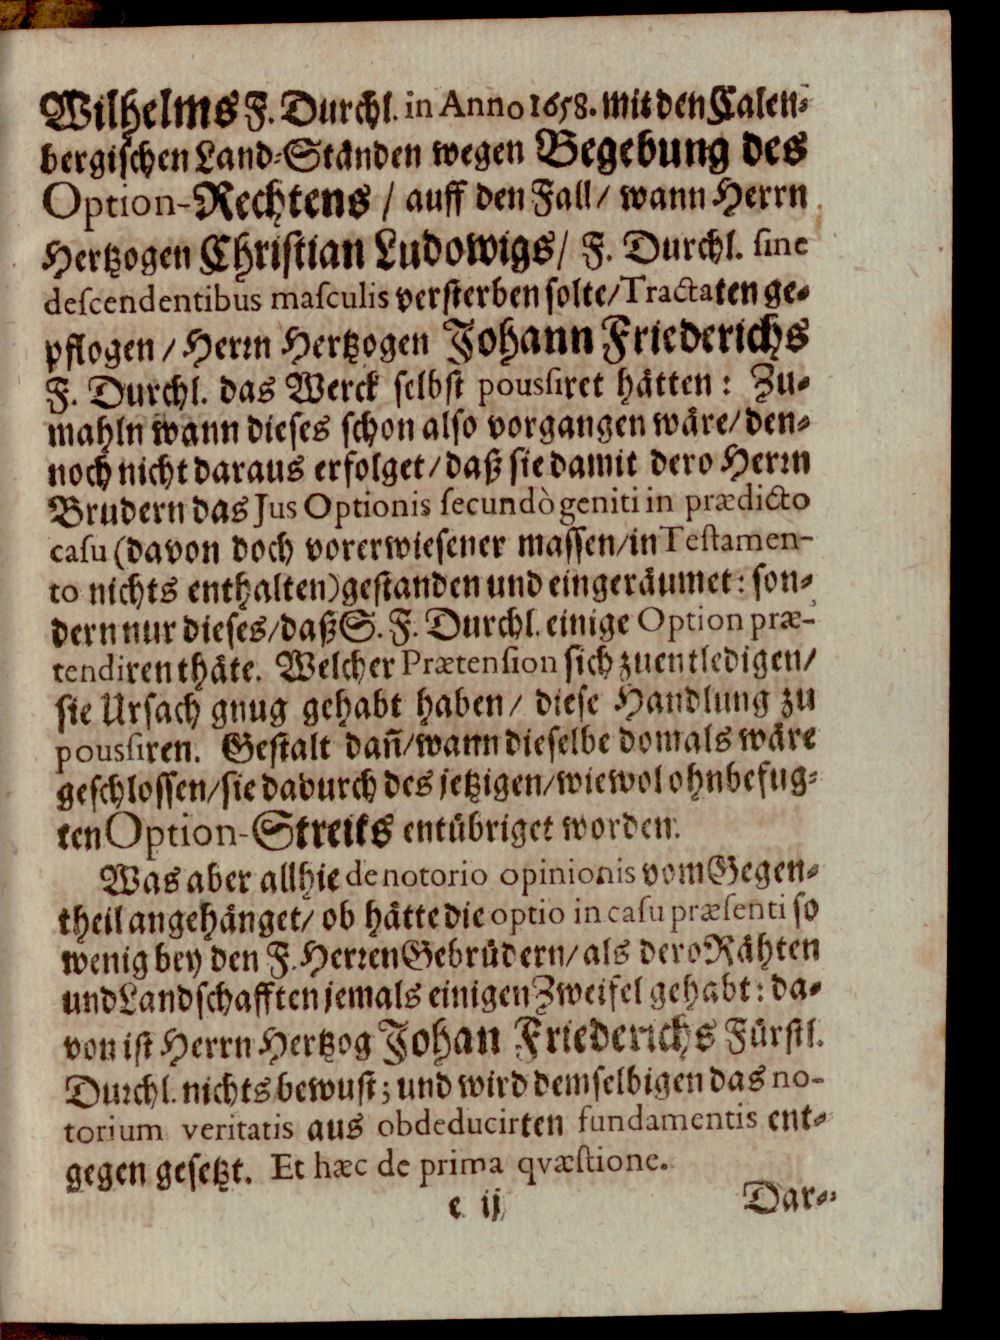 Wilhelms F. Durchl. in Anno 1658. mit den Calen-
bergischen Land-Ständen wegen Begebung des
Option-Rechtens / auff den Fall / wann Herrn
Hertzogen Christian Ludowigs / F. Durchl. sine
descendentibus masculis versterben solte / Tractaten ge-
pflogen / Herrn Hertzogen Johann Friederichs
F. Durchl. das Werck selbst poussiret hätten: Zu-
mahln wann dieses schon also vorgangen wäre / den-
noch nicht daraus erfolget / daß sie damit dero Herrn
Brudern das Jus Optionis secundò geniti in prædicto
casu (davon doch vorerwiesener massen / in Testamen-
to nichts enthalten) gestanden und eingeräumet: son-
dern nur dieses / daß S. F. Durchl. einige Option præ-
tendiren thäte. Welcher Prætension sich zuentledigen /
sie Ursach gnug gehabt haben / diese Handlung zu
poussiren. Gestalt dañ / wann dieselbe domals wäre
geschlossen / sie dadurch des jetzigen / wiewol ohnbefug-
ten Option-Streits entübriget worden.
Was aber allhie de notorio opinionis vom Gegen-
theil angehänget / ob hätte die optio in casu præsenti so
wenig bey den F. Herren Gebrüdern / als dero Rähten
und Landschafften jemals einigen Zweifel gehabt: da-
von ist Herrn Hertzog Johan Friederichs Fürstl.
Durchl. nichts bewust; und wird demselbigen das no-
torium veritatis aus obdeducirten fundamentis ent-
gegen gesetzt. Et hæc de prima qvæstione.
e ij
Dar-